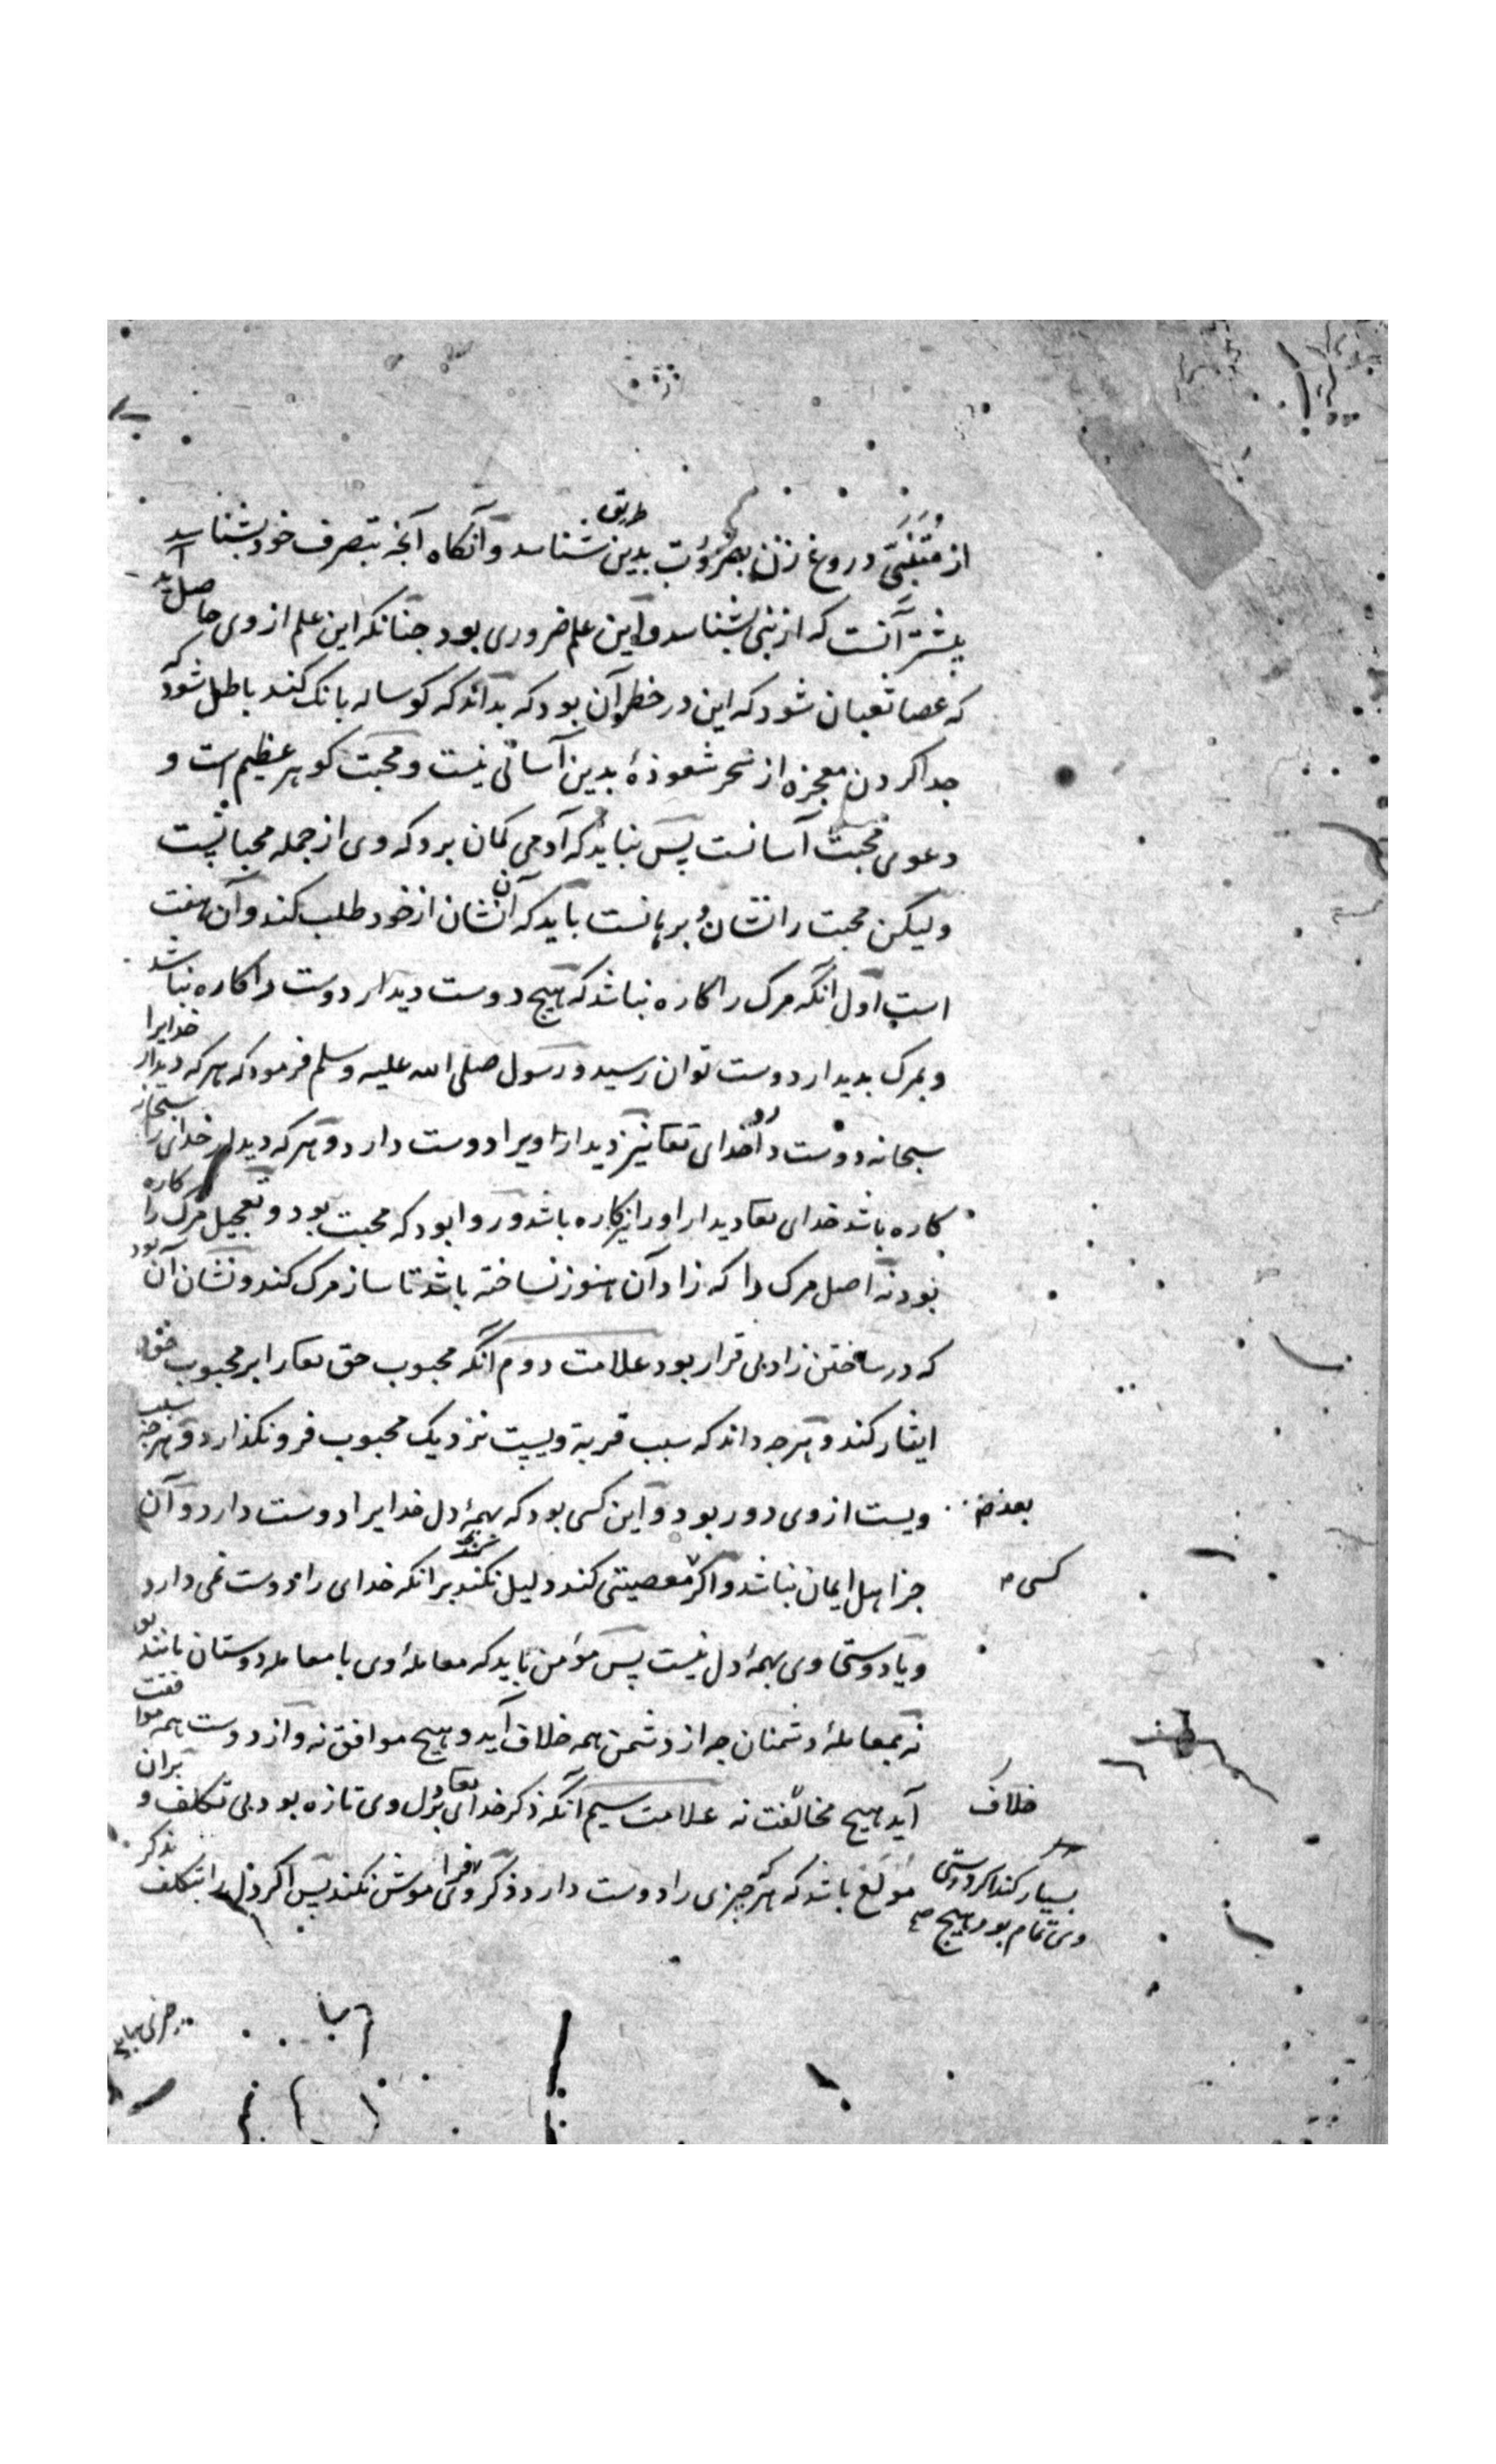 از متنبّی دروغ زن بضرورت بدین طریق شناسد و آنکاه آنچه بتصرف خود بشناسد
بیشتر آنست که از نبی بشناسد و این علم ضروری بود چنانکه این علم از وی حاصل آید
که عصا ثعبان شود که این در خطر آن بود که بداند که کوساله بانک کند باطل شود که
جدا کردن معجزه از سحر شعوذهٔ بدین آسانی نیست و محبت کوهر عظیم است و
دعوی محبت آسانست پس نباید که آدمی کمان برد که وی از جمله محبانست
ولیکن محبت را نشان و برهانست باید که آن نشان از خود طلب کند و آن هفت
است اول آنکه مرک را کاره نباشد که هیچ دوست دیدار دوست را کاره نباشد
و بمرک بدیدار دوست توان رسید و رسول صلی الله علیه وسلم فرمود که هر که دیدار خدایرا
سبحانه دوست دارد خدای تعا نیز دیدار ویرا دوست دارد و هر که دیدار خدای را سبحانه
کاره باشد خدای تعا دیدار او را نیز کاره باشد و روا بود که محبت بود و تعجیل مرک را کاره
بود نه اصل مرک را که زاد آن هنوز نساخته باشد تا ساز مرک کند و نشان آن بود
که در ساختن زاد بی قرار بود علامت دوم آنکه محبوب حق تعا را بر محبوب خود
ایثار کند و هر چه داند که سبب قربة ویست نزدیک محبوب فرونکذارد و هر چه سبب
بعد ویست از وی دور بود و این کسی بود که بهمهٔ دل خدایرا دوست دارد و آن
کسی جز اهل ایمان نباشد و اکر معصیتی کند دلیل نکند برانکه خدای را دوست نمی دارد
و یا دوستی وی بهمهٔ دل نیست پس مؤمن باید که معاملهٔ وی با معامله دوستان مانند بود
نه بمعاملهٔ دشمنان چه از دشمن همه خلاف آید و هیچ موافق نه و از دوست همه موافقت
آید هیچ مخالفت نه علامت سیم آنکه ذکر خدای تعا بر دل وی تازه بود بی تکلف و بران
خلاف
مولع باشد که هر که چیزی را دوست دارد ذکر وی فراموش نکند پس اکر دل را بتکلف بذکر
بسیار کند اکر دوستی
وی تمام بود هیچ